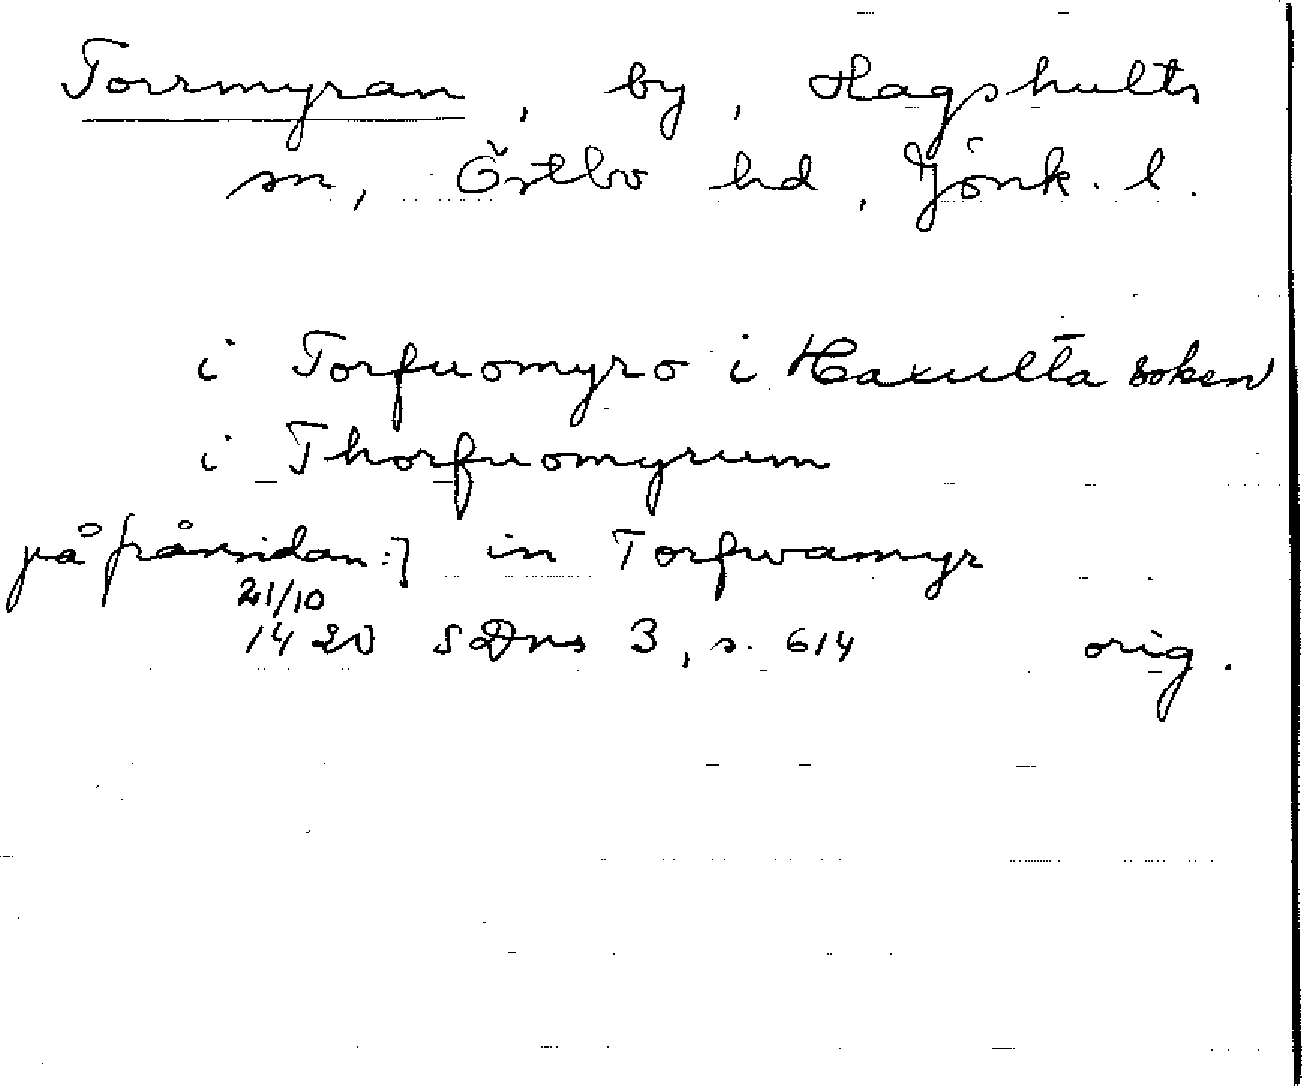 Torrmyran, by, Hagshults
sn, Östbo hd, Jönk. l.
i Torfuomyro i Haxulta soken
i Thorfuomyrum
på frånsidan:] in Torfwamyr
21/10
1420 SDns 3, s. 614 orig.